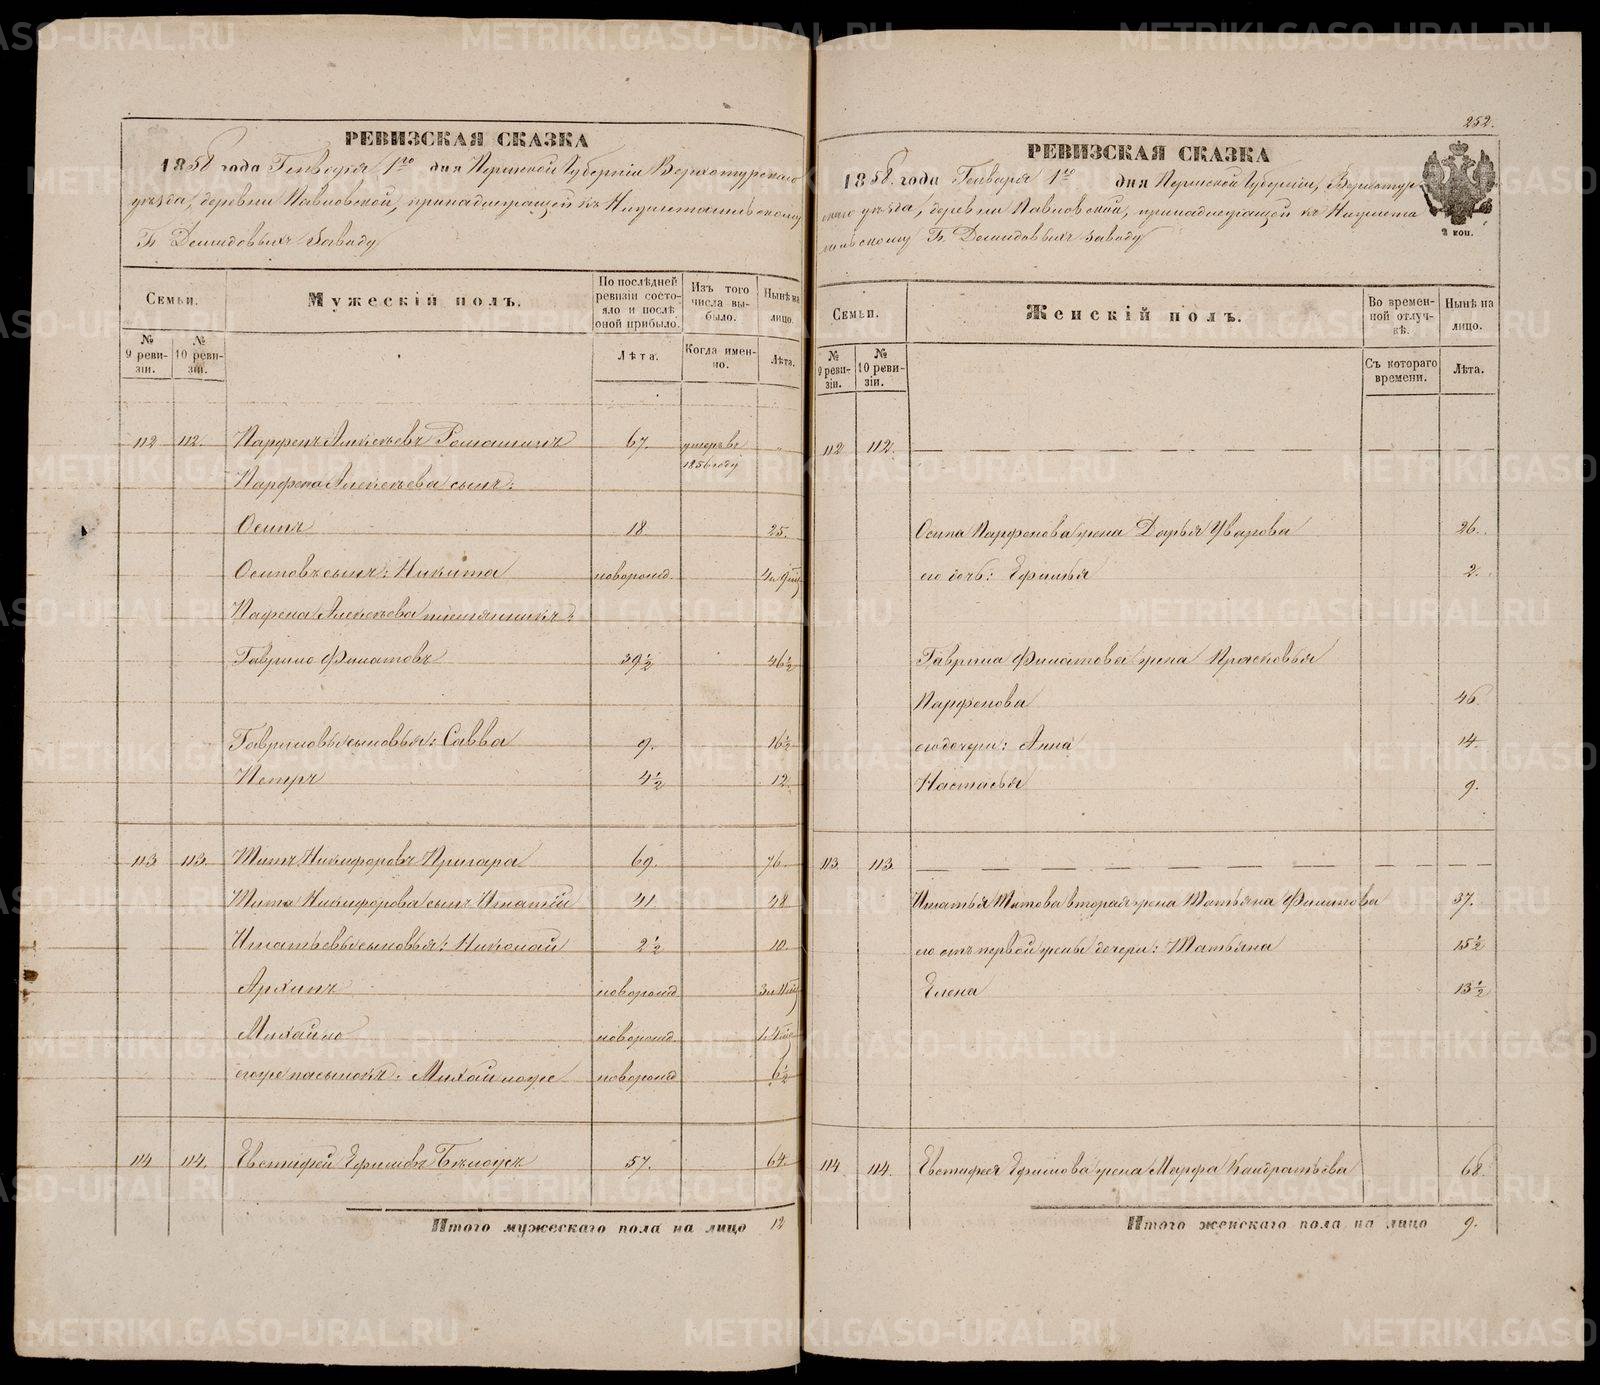 РЕВИЗСКАЯ СКАЗКА
1858 года Генваря 1го дня Пермской Губерніи Верхотурскаго
уѣзда, деревни Павловской, принадлежащей къ Нижнетагильскому
Гг. Демидовыхъ заводу
Семьи.
Мужескій полъ.
По послѣдней ревизіи состояло и послѣ оной прибыло.
Изъ того числа выбыло.
Нынѣ на лицо.
№ 9 ревизіи.
№ 10 ревизіи.
Лѣта.
Когда именно.
Лѣта.
112 112. Парфенъ Алексѣевъ Ромашинъ 67. умеръ въ 1856 году „
Парфена Алексѣева сынъ:
Осипъ 18. 25.
Осиповъ сынъ: Никита новорожд. 4 и 9 мѣс
Парфена Алексѣева племянникъ:
Гаврило Филатовъ 39½ 46½
Гавриловы сыновья: Савва 9. 16½
Петръ 4½ 12.
113 113. Титъ Никифоровъ Пригара 69. 76.
Тита Никифорова сынъ Игнатій 41 48
Игнатьевы сыновья: Николай 2½ 10.
Архипъ новорожд 3 и 11 мѣс
Михайло новорожд. 1. 4 мѣс
егоже пасынокъ: Михайло же новорожд 6½
114 114. Евстифей Ефимовъ Бѣлоусъ 57. 64.
Итого мужескаго пола на лицо 12
252.
РЕВИЗСКАЯ СКАЗКА
1858. года Генваря 1го дня Пермской Губерніи, Верхотур-
скаго уѣзда, деревни Павловской, принадлежащей къ Нижнета
гильскому Гг. Демидовыхъ заводу
2 коп.
Семьи.
Женскій полъ.
Во временной отлучкѣ.
Нынѣ на лицо.
№ 9 ревизіи.
№ 10 ревизіи.
Съ котораго времени.
Лѣта.
112 112.
Осипа Парфенова жена Дарья Уварова 26.
его дочь: Ефимья 2.
Гаврила Филатова жена Прасковья
Парфенова 46
его дочери: Анна 14.
Настасья 9.
113. 113.
Игнатья Титова вторая жена Татьяна Филипова 37.
его отъ первой жены дочери: Татьяна 15½
Елена 13½
114 114. Евстифея Ефимова жена Марфа Кандратьева 68.
Итого женскаго пола на лицо 9.
METRIKI.GASO-URAL.RU